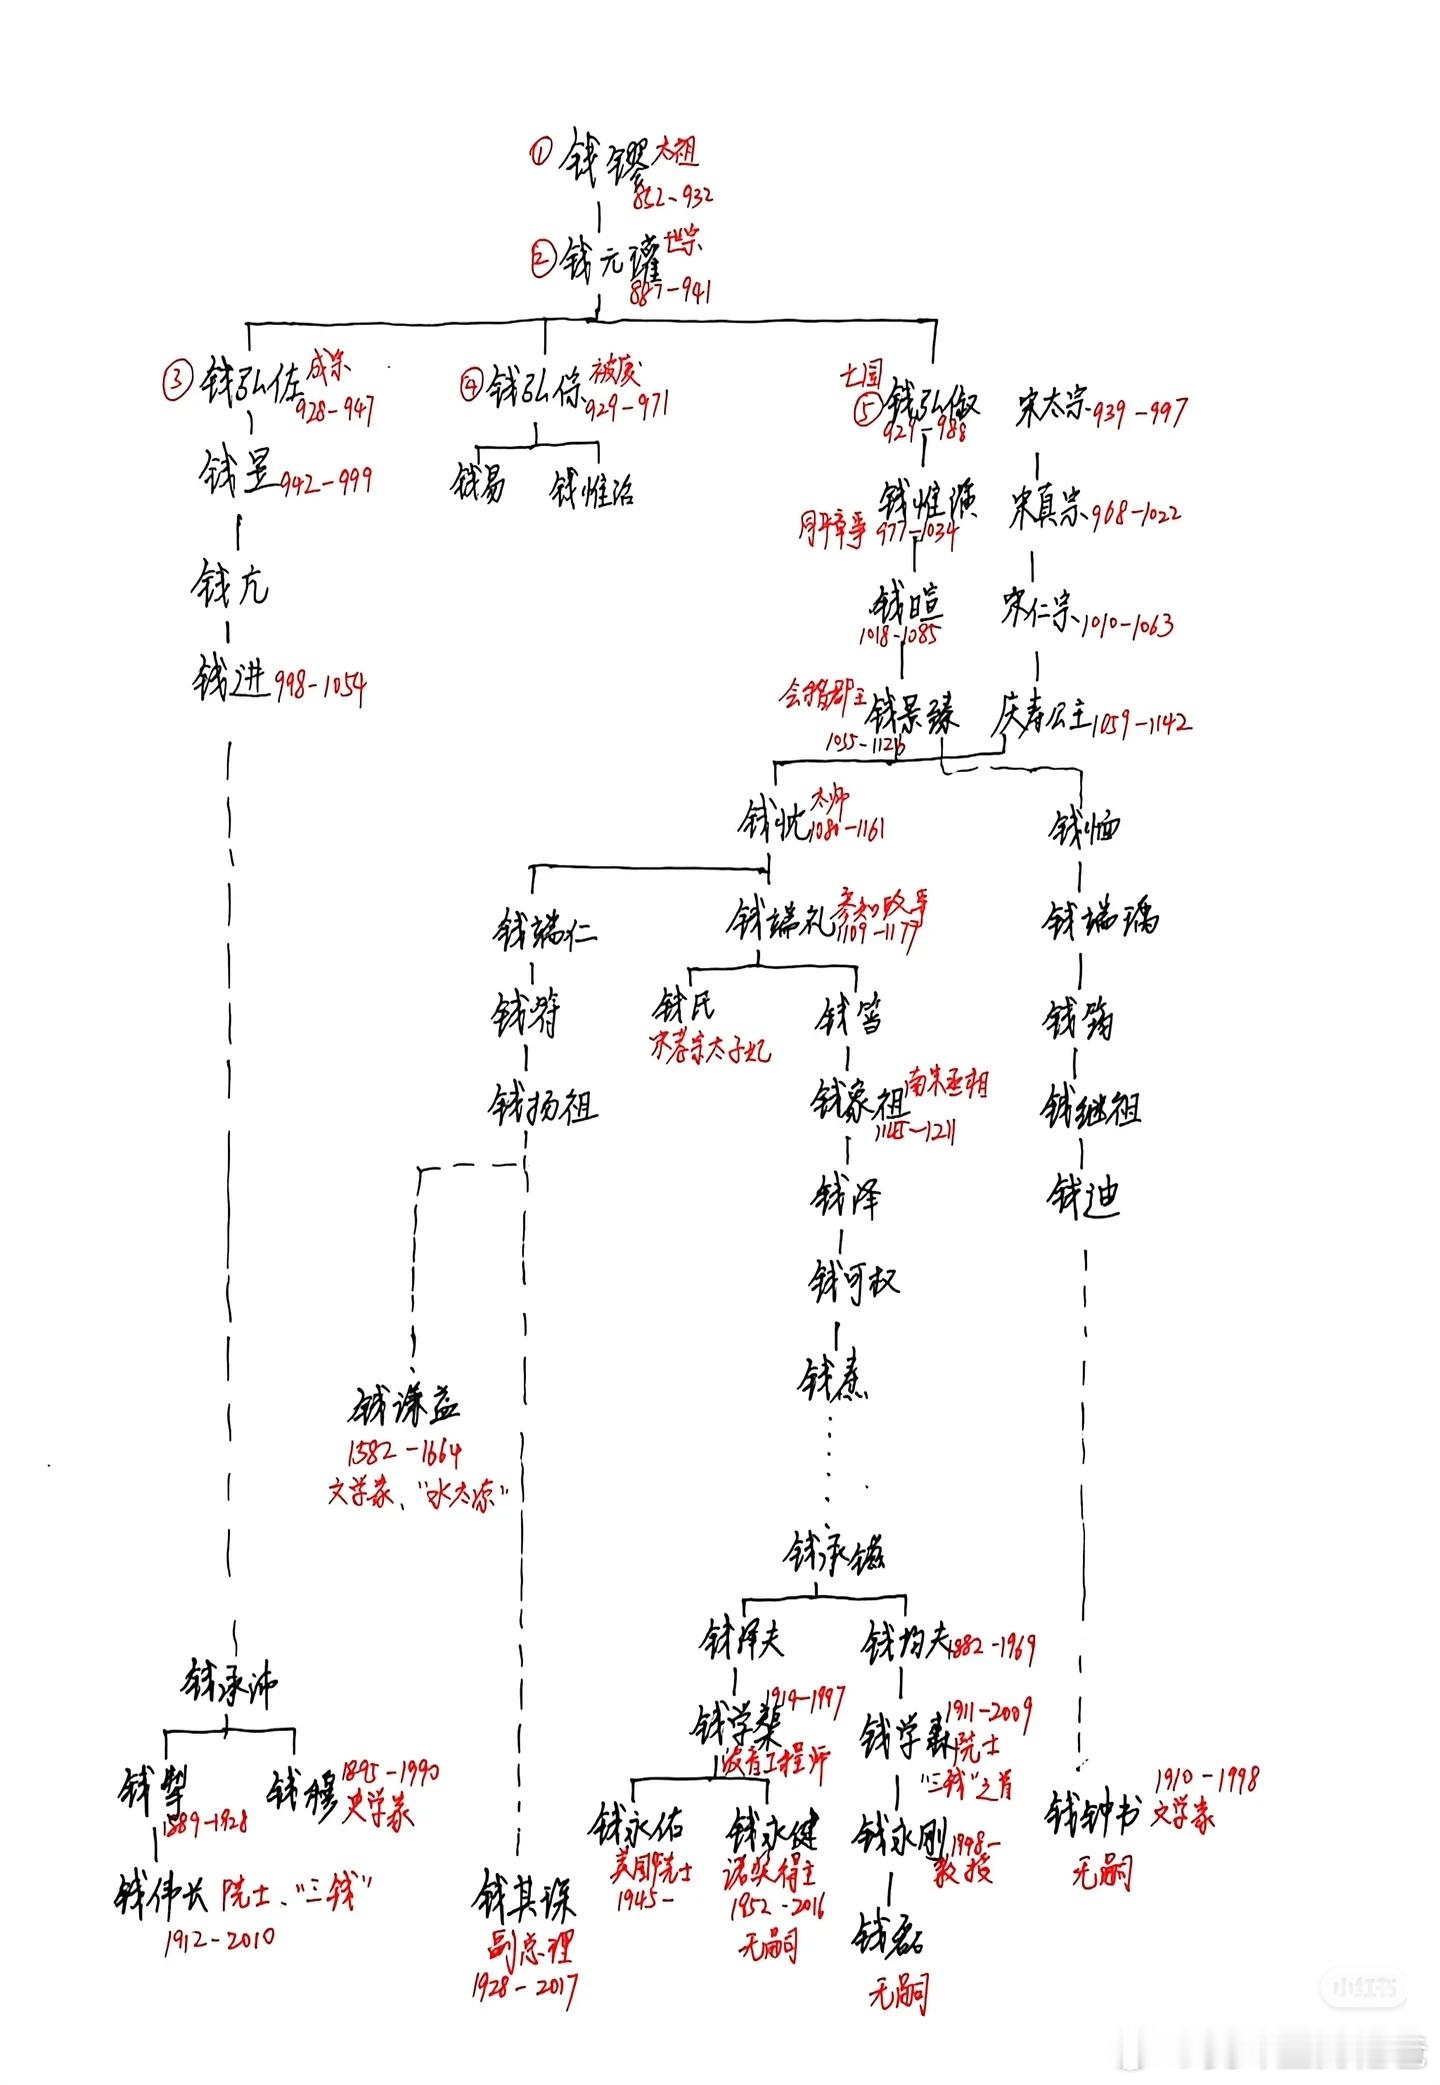 ① 钱镠 太祖
852-932
② 钱元瓘 世宗
887-941
③ 钱弘佐 成宗
928-947
④ 钱弘倧 被废
929-971
亡国
⑤ 钱弘俶
929-988
宋太宗 939-997
钱昱 942-999
钱易
钱惟治
钱惟演
同平章事 977-1034
宋真宗 968-1022
钱亢
钱暄
1018-1085
宋仁宗 1010-1063
钱进 998-1054
会稽郡王 钱景臻
1055-1126
庆寿公主 1059-1142
钱忱 太师
1080-1161
钱愐
钱端仁
钱端礼 参知政事
1109-1177
钱端瑀
钱篈
钱氏
宋孝宗太子妃
钱筜
钱筠
钱扬祖
钱象祖 南宋丞相
1145-1211
钱继祖
钱泽
钱迪
钱可权
钱焘
钱谦益
1582-1664
文学家、“水太凉”
钱承镃
钱泽夫
钱均夫 1882-1969
钱承沛
钱学榘 1914-1997
波音工程师
钱学森 1911-2009
院士
“三钱”之首
钱挚
1889-1928
钱穆 1895-1990
史学家
钱永佑
美国院士
1945-
钱永健
诺奖得主
1952-2016
无嗣
钱永刚 1948-
教授
钱钟书 1910-1998
文学家
无嗣
钱伟长 院士、“三钱”
1912-2010
钱其琛
副总理
1928-2017
钱磊
无嗣
小红书